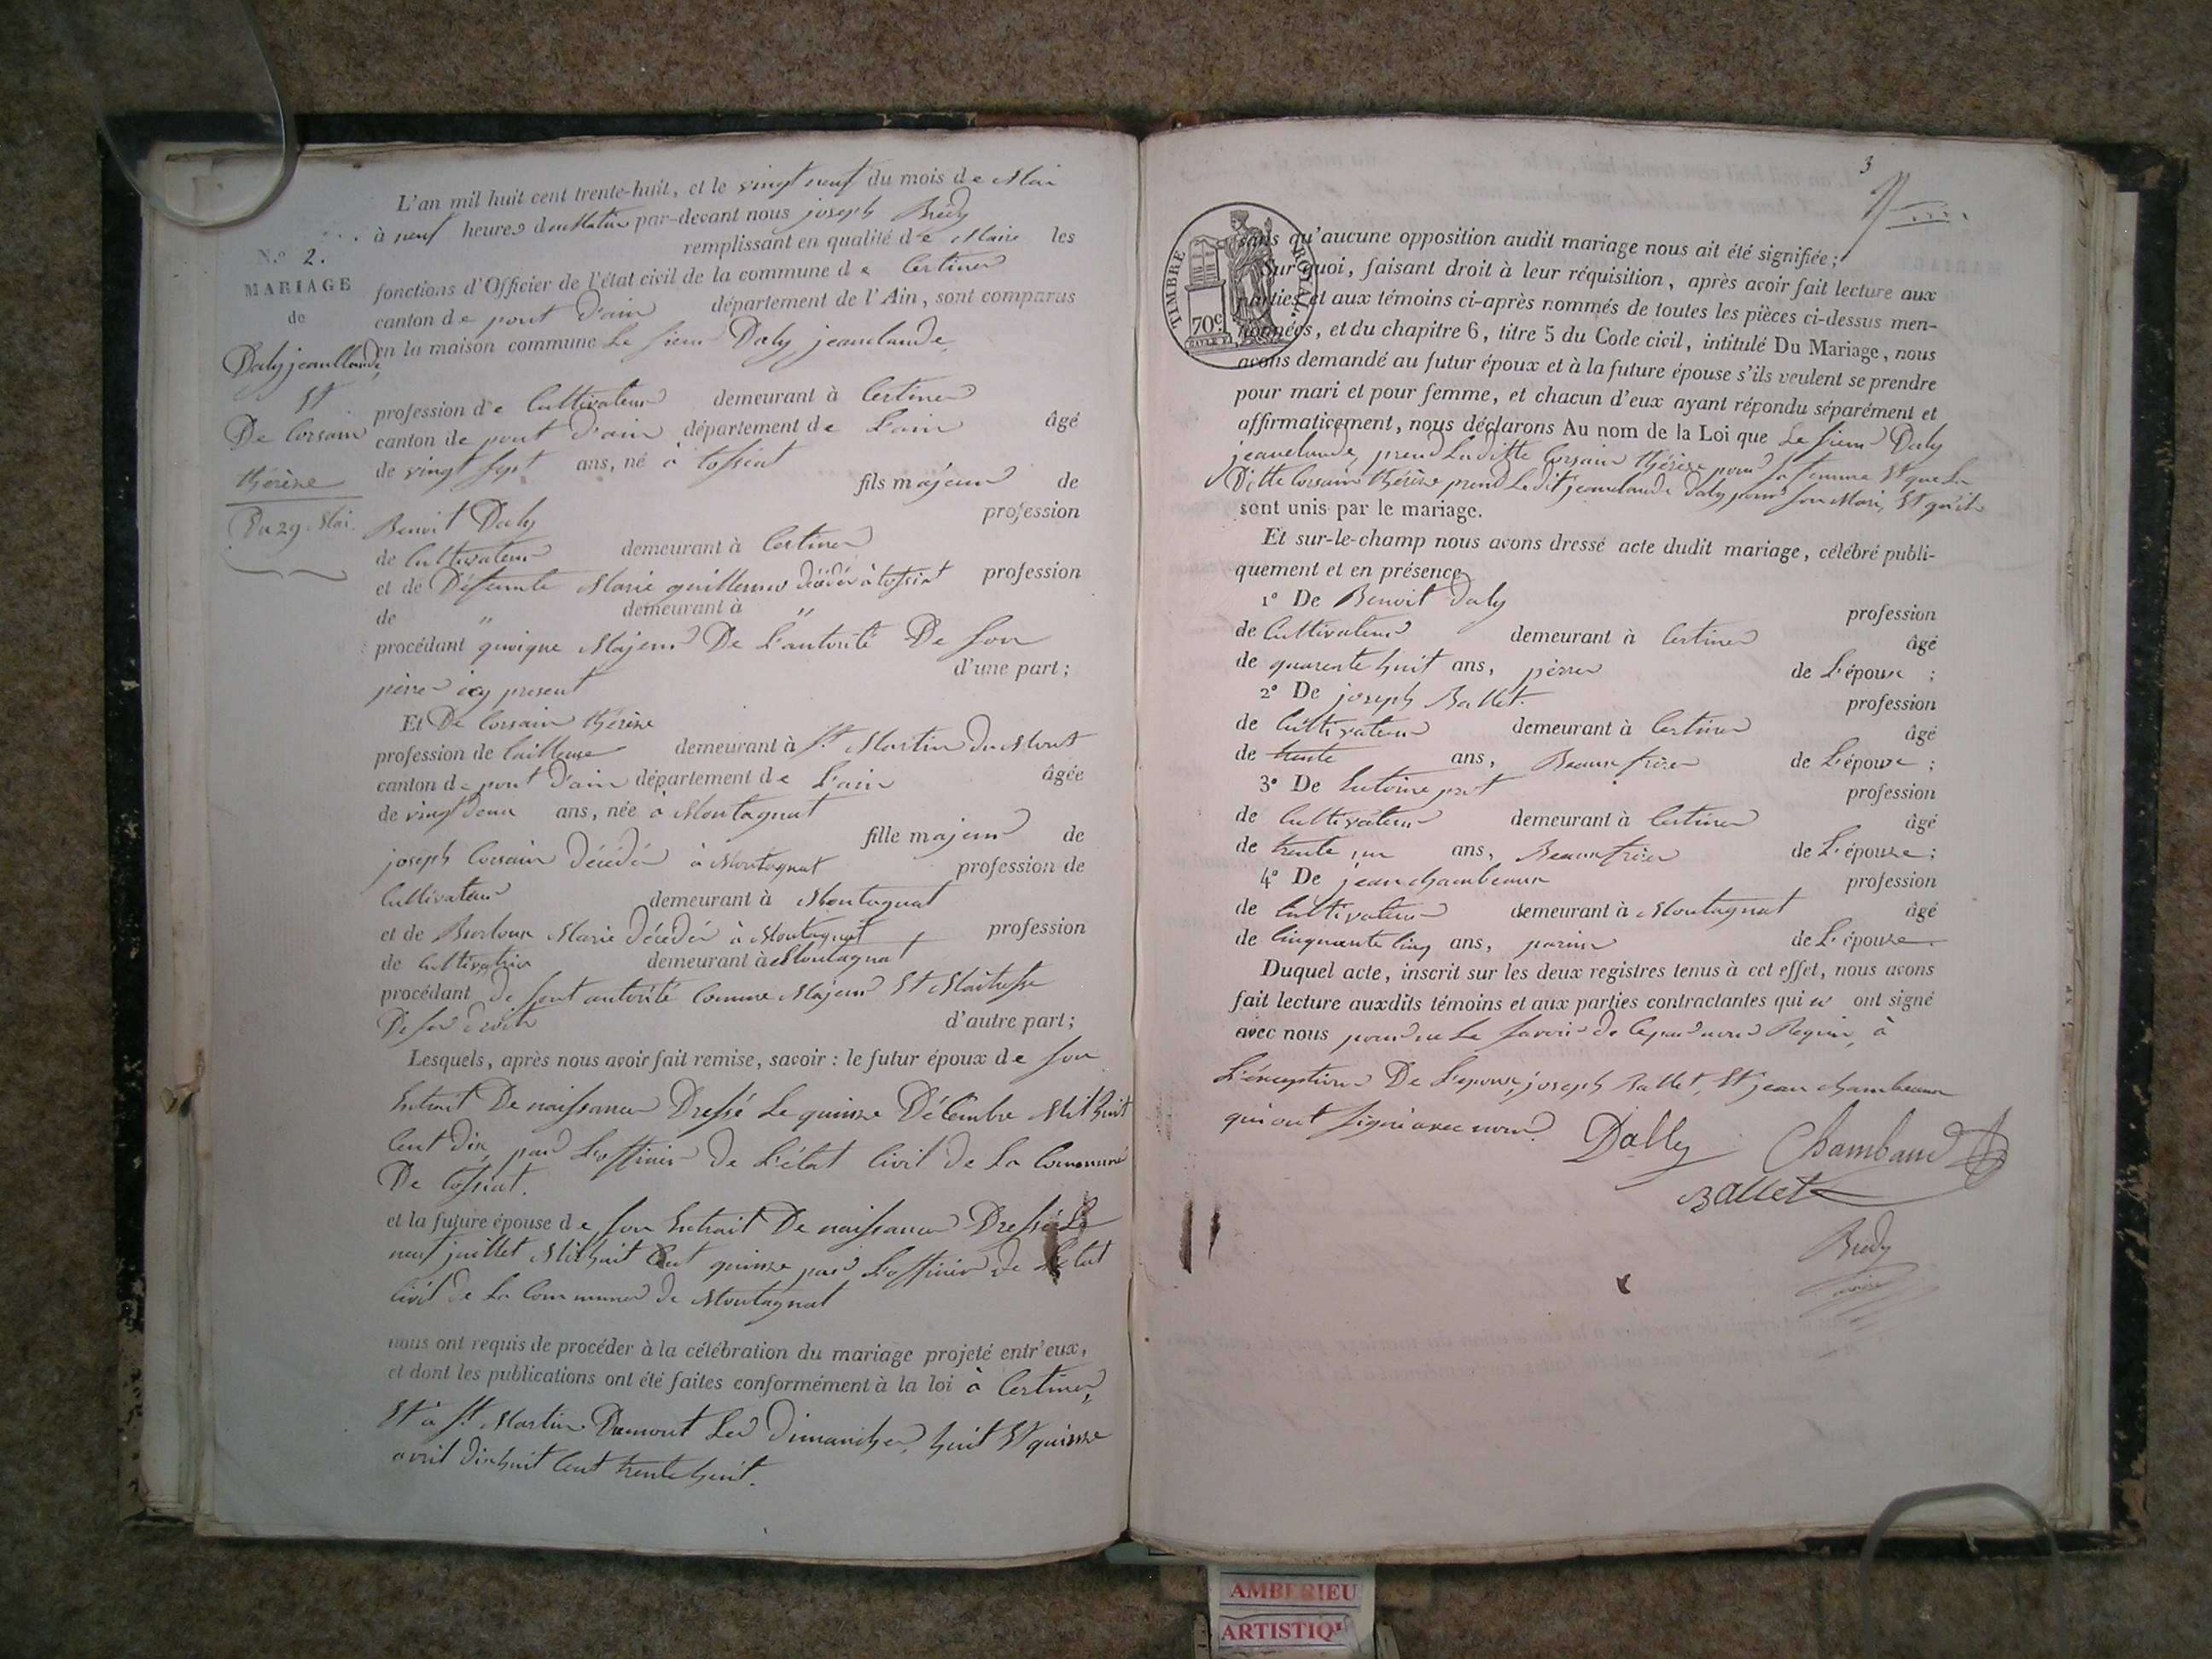 L'an mil huit cent trente-huit, et le vingt neuf du mois de Mai
à neuf heures du Matin par-devant nous joseph Bredy
remplissant en qualité de Maire les
N.º 2.
MARIAGE
de
Daly jeanclaude
Et
De Corsain
thérèse
Du 29 Mai.
fonctions d'Officier de l'état civil de la commune de Certines
canton de pont d'ain département de l'Ain, sont comparus
en la maison commune Le sieur Daly jeanclaude,
profession de Cultivateur demeurant à Certines
canton de pont d'ain département de L'ain âgé
de vingt sept ans, né à tossiat
fils majeur de
Benoit Daly profession
de Cultivateur demeurant à Certines
et de Défunte Marie guillermo décédée à tossiat profession
de " demeurant à "
procédant quoique Majeur De L'autorité De son
père icy present d'une part;
Et De Corsain thérèse
profession de tailleuse demeurant à St Martin du Mont
canton de pont d'ain département de L'ain âgée
de vingt deux ans, née à Montagnat
fille majeur de
joseph Corsain Décédé à Montagnat profession de
Cultivateur demeurant à Montagnat
et de Marie décédée à Montagnat, profession
de Cultivatrice demeurant à Montagnat
procédant de sont autorité Comme Majeur Et Maitresse
De ses droits d'autre part;
Lesquels, après nous avoir fait remise, savoir : le futur époux de son
Extrait De naissance Dressé Le quinze Décembre Mil huit
Cent dix, par L'officier de L'état Civil de La Commune
De tossiat.
et la future épouse de son Extrait De naissance Dressé Le
neuf juillet Mil huit Cent quinze par L'officier de L'état
Civil de La Commune de Montagnat
nous ont requis de procéder à la célébration du mariage projeté entr'eux,
et dont les publications ont été faites conformément à la loi à Certines,
Et à St Martin Dumont Les Dimanches, huit Et quinze
avril dixhuit Cent trente huit.
3
TIMBRE ROYAL
70c
sans qu'aucune opposition audit mariage nous ait été signifiée;
Sur quoi, faisant droit à leur réquisition, après avoir fait lecture aux
parties et aux témoins ci-après nommés de toutes les pièces ci-dessus men-
tionnées, et du chapitre 6, titre 5 du Code civil, intitulé Du Mariage, nous
avons demandé au futur époux et à la future épouse s'ils veulent se prendre
pour mari et pour femme, et chacun d'eux ayant répondu séparément et
affirmativement, nous déclarons Au nom de la Loi que Le sieur Daly
jeanclaude, prend Laditte Corsain thérèse pour sa femme Et que La
Ditte Corsain thérèse prend Ledit jeanclaude daly pour son Mari, Et qu'ils
sont unis par le mariage.
Et sur-le-champ nous avons dressé acte dudit mariage, célébré publi-
quement et en présence
1º De Benoit Daly profession
de Cultivateur demeurant à Certines âgé
de quarente huit ans, père de L'époux ;
2º De joseph Ballet. profession
de Cultivateur demeurant à Certines âgé
de trente ans, Beaux frère de L'époux ;
3º De Antoine profession
de Cultivateur demeurant à Certines âgé
de trente un ans, Beaux frère de L'épouse ;
4º De jean chambeaux profession
de Cultivateur demeurant à Montagnat âgé
de Cinquante Cinq ans, de L'épouse
Duquel acte, inscrit sur les deux registres tenus à cet effet, nous avons
fait lecture auxdits témoins et aux parties contractantes qui ont signé
avec nous pour ne Le savoir de Ce par nous Requis, à
L'éxception De L'époux, joseph Ballet, Et jean chambeaux
qui ont signé avec nous.
Dally Chambaud
Ballet
Bredy
maire
AMBERIEU
ARTISTIQU